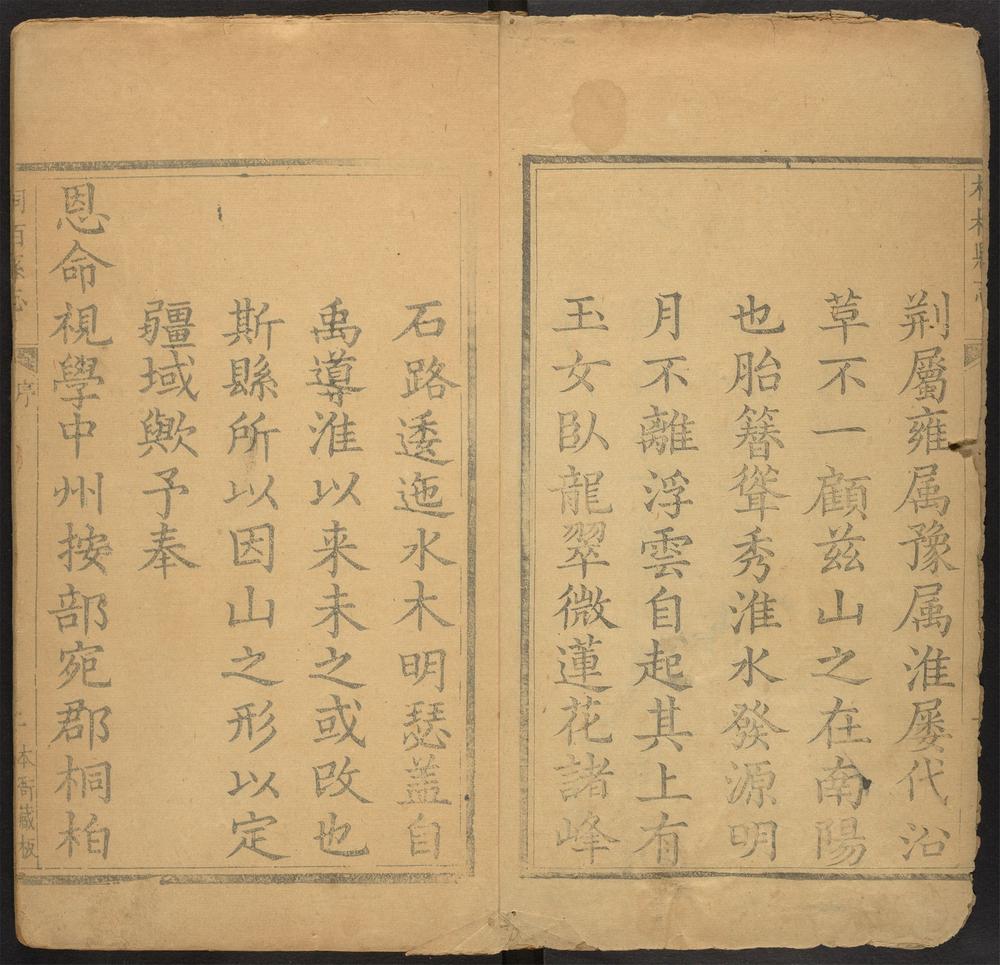 荆屬雍属豫属淮屡代沿
草不一顧茲山之在南陽
也胎簪聳秀淮水發源明
月不離浮雲自起其上有
玉女臥龍翠微蓮花諸峰
石路逶迤水木明瑟盖自
禹導淮以来未之或改也
斯縣所以因山之形以定
疆域歟予奉
恩命視學中州按部宛郡桐柏
桐百縣志
序
本衙藏板